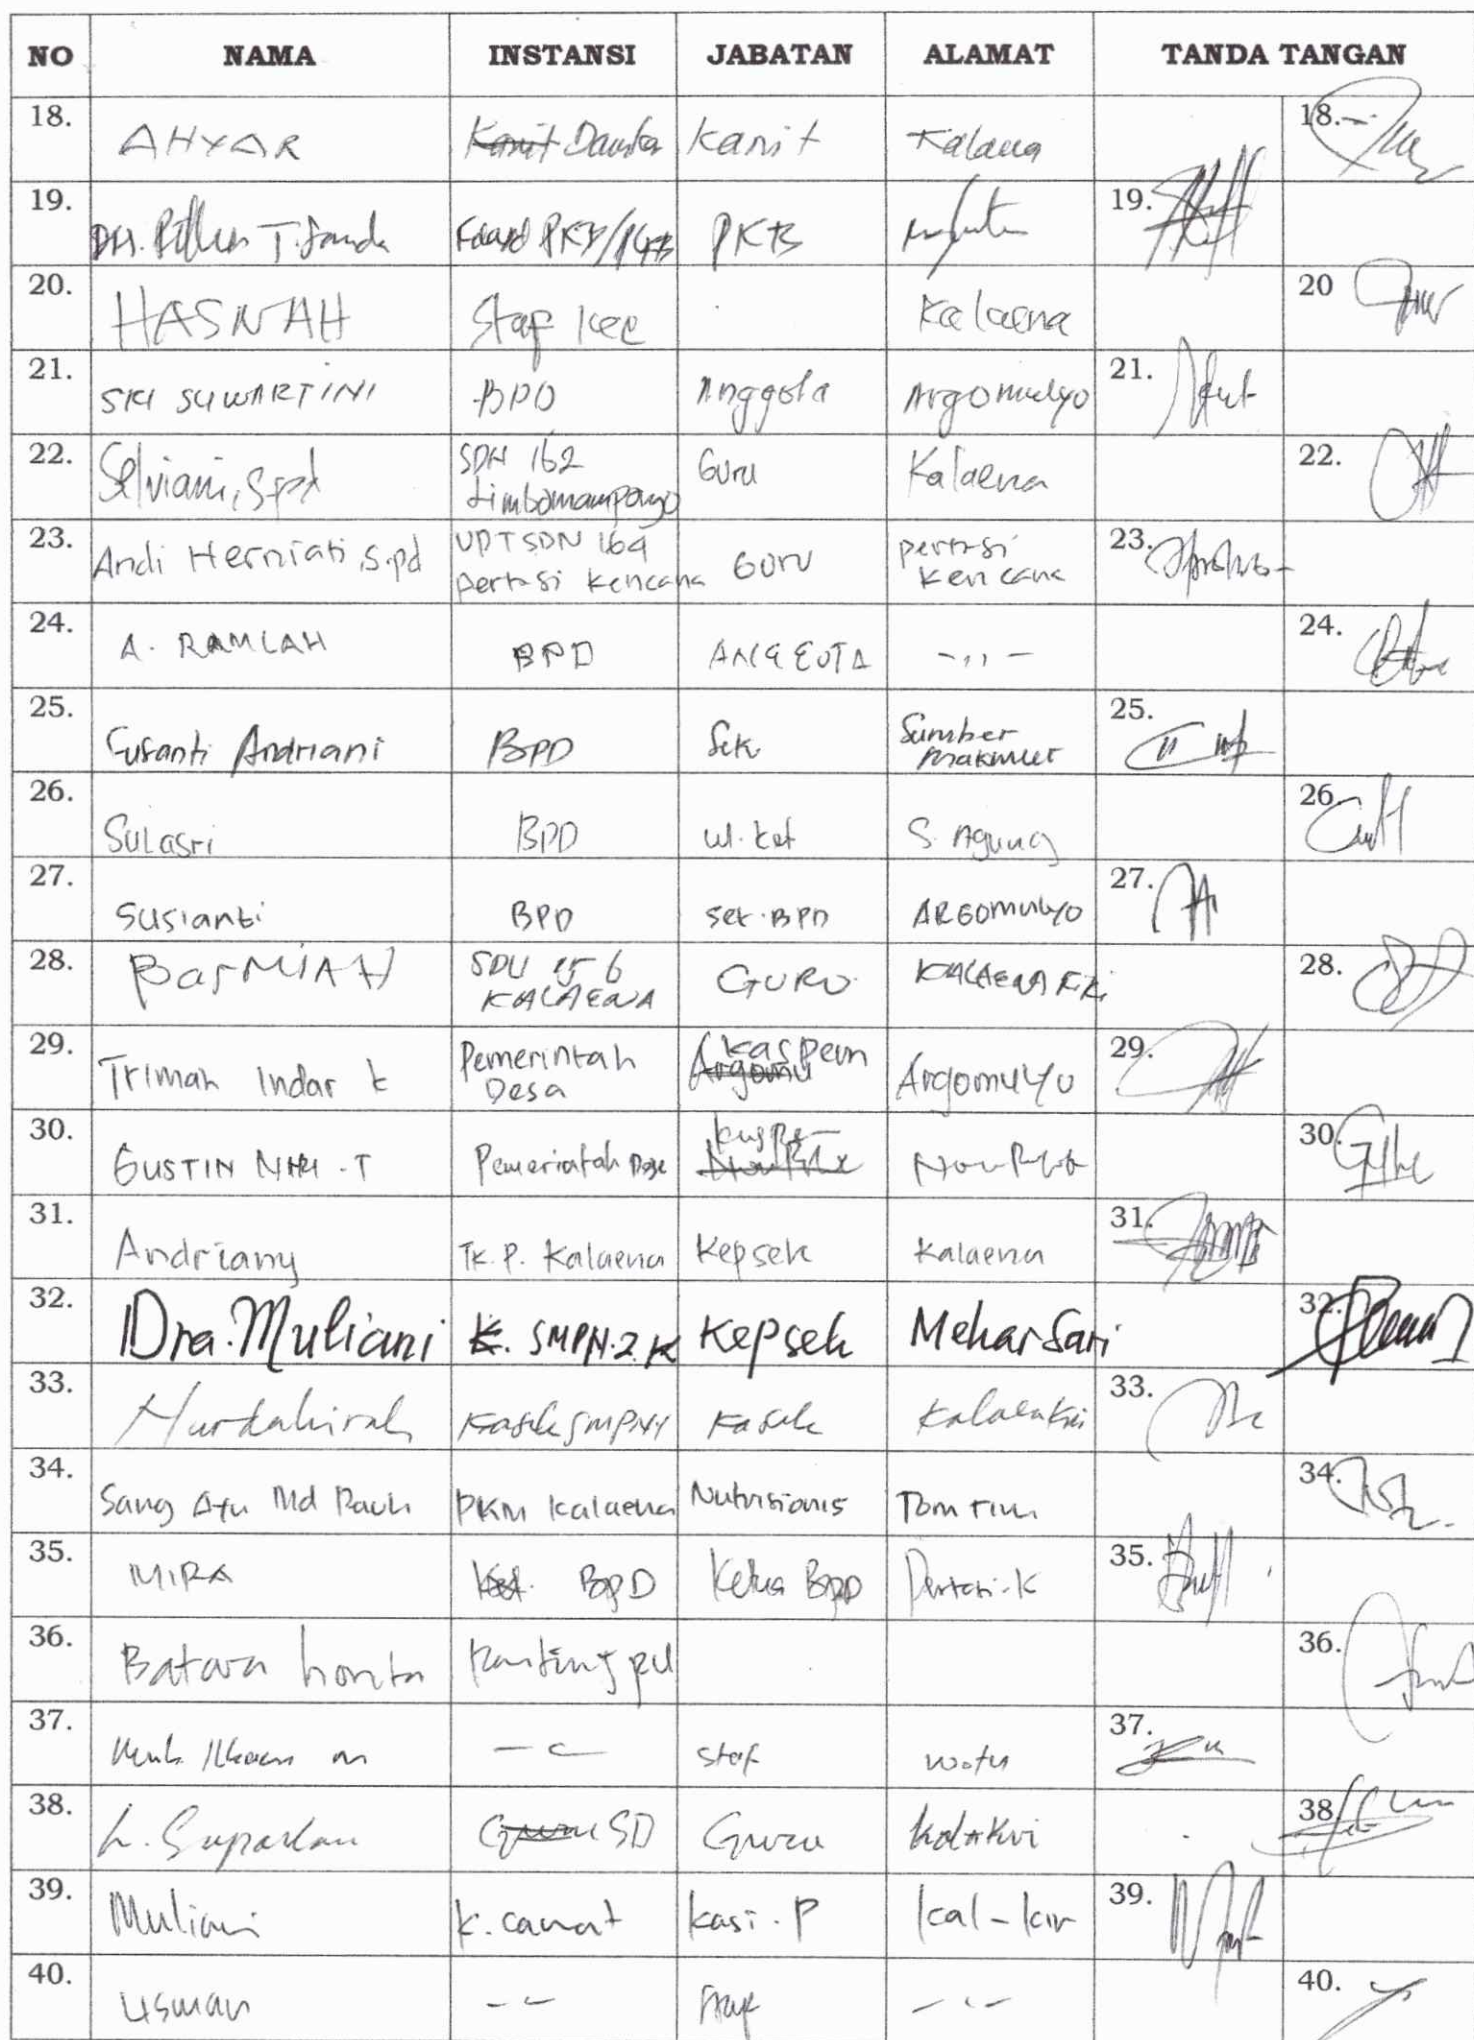 NO NAMA INSTANSI JABATAN ALAMAT TANDA TANGAN
18. AHYAR Kanit Kalaena 18.
19. PKB 19.
20. HASNAH Staf kec Kalaena 20
21. SRI SUWARTINI BPD Anggota Argomulyo 21.
22. Selviani, S.pd SDN 162 Limbomampongo Guru Kalaena 22.
23. Andi Herniati, S.pd UPT SDN 164 Pertasi Kencana Guru Pertasi Kencana 23.
24. A. RAMLAH BPD ANGGOTA - ,, - 24.
25. Susanti Andriani BPD Sek Sumber Makmur 25.
26. Sulasri BPD wl. ket S. Agung 26.
27. Susianti BPD sek. BPD ARGOMULYO 27.
28. BasMIAH SDN 156 KALAENA GURU KALAENA KiRi 28.
29. Triman Indar k Pemerintah Desa kaspem Argomulyo 29.
30. GUSTIN Pemerintah Desa 30.
31. Andriany TK. P. Kalaena Kepsek Kalaena 31.
32. Dra. Muliani K. SMPN. 2. K Kepsek MekarSari 32.
33. 33.
34. Sang Ayu Md PKM Kalaena Nutrisionis 34.
35. MIRA BPD Ketua BPD Pertasi-K 35.
36. Batara 36.
37. staf wotu 37.
38. L. Suparlan SD Guru 38
39. Muliani K. camat kasi. P kal - kir 39.
40. Usman - - Staf - - - 40.